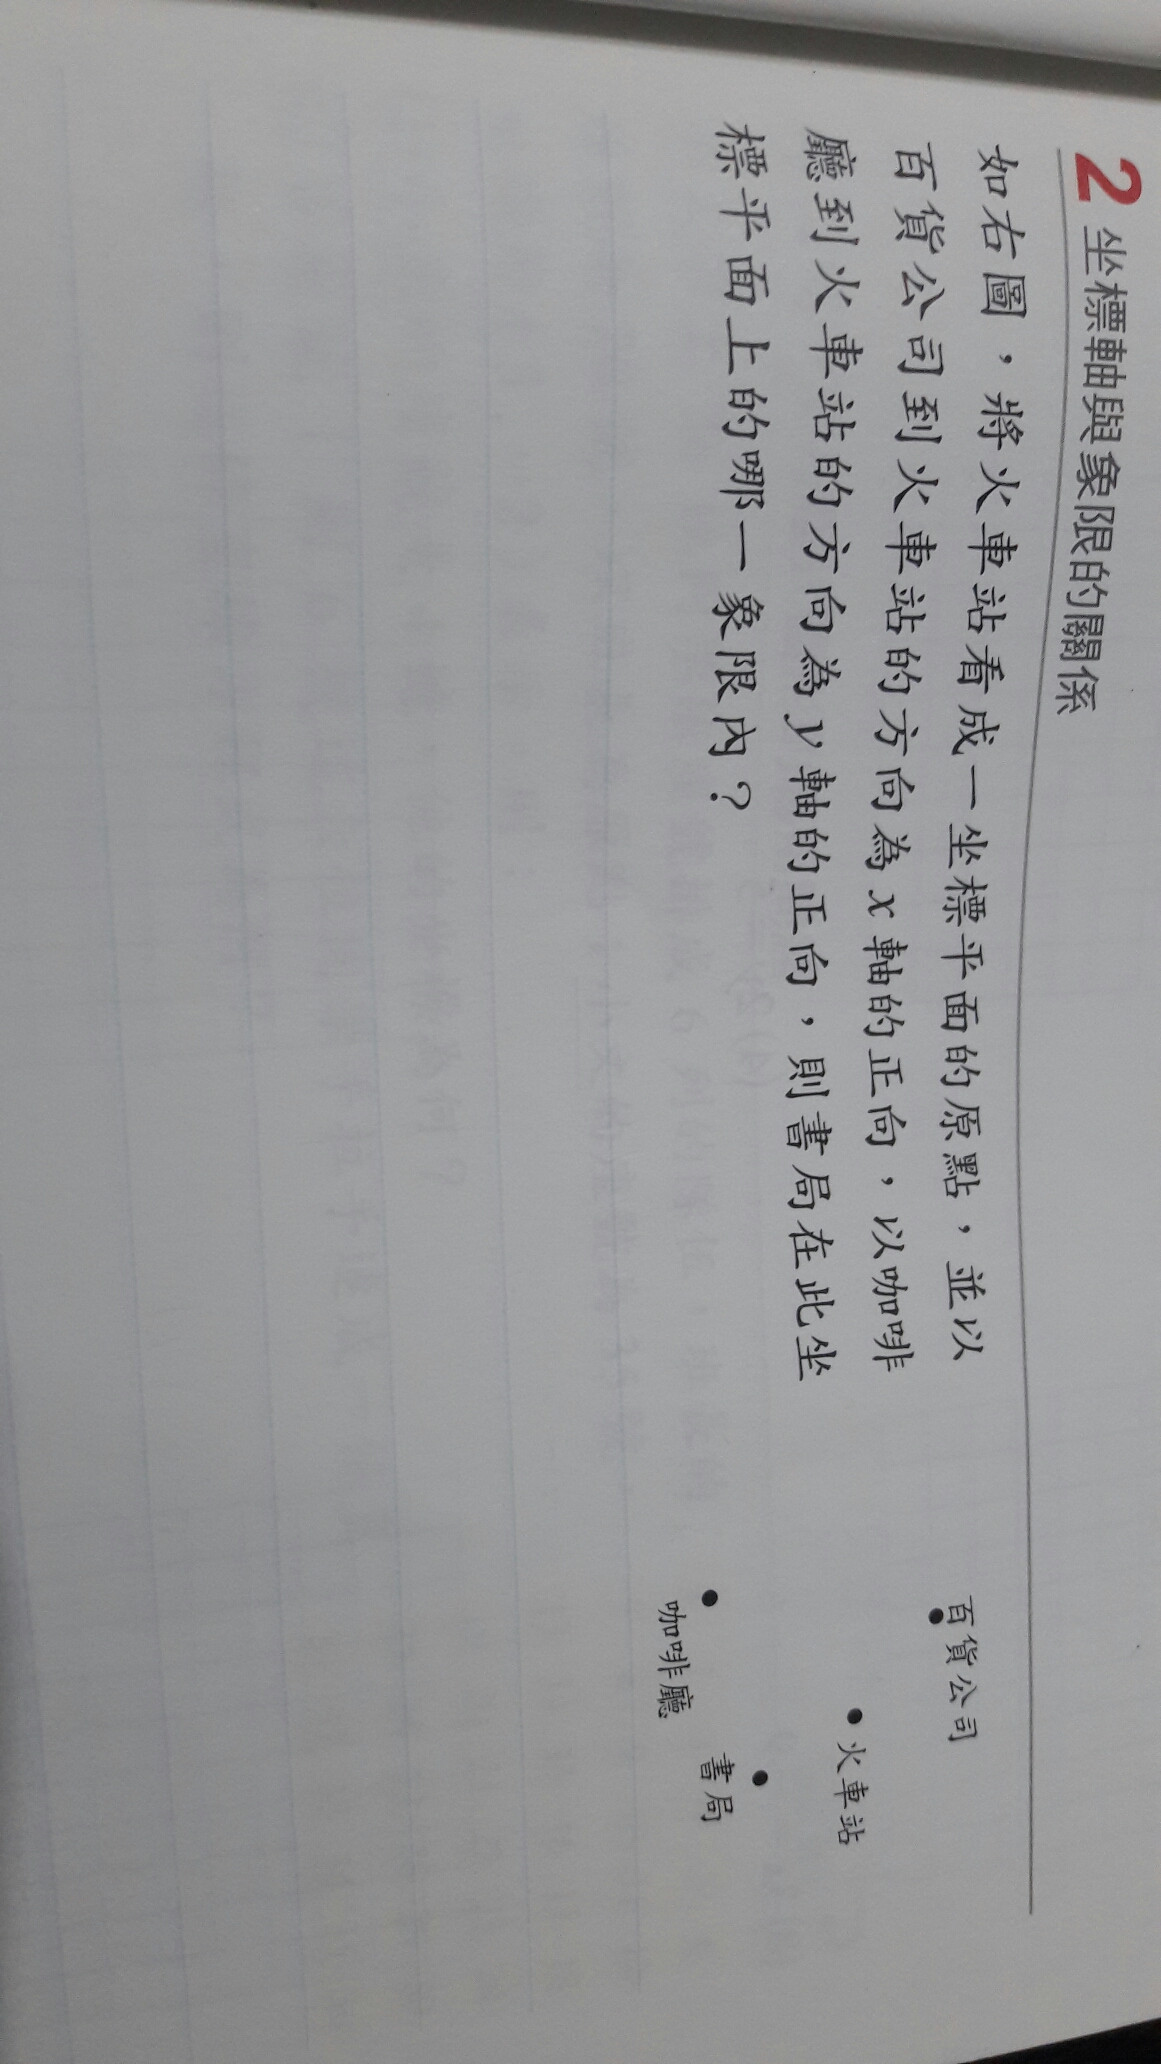 2 坐標軸與象限的關係
如右圖，將火車站看成一坐標平面的原點，並以
百貨公司到火車站的方向為x軸的正向，以咖啡
廳到火車站的方向為y軸的正向，則書局在此坐
標平面上的哪一象限內？
百貨公司
火車站
咖啡廳
書局